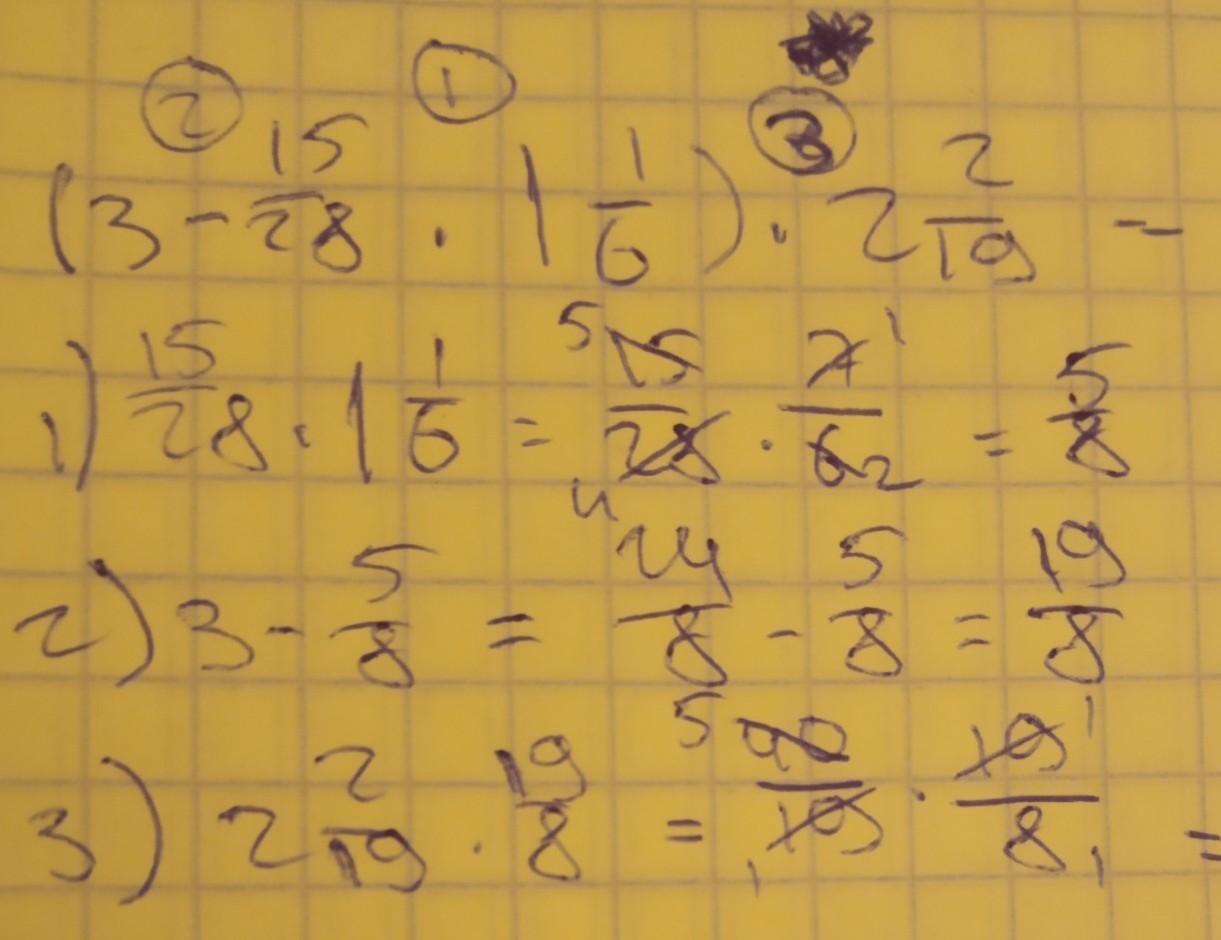 ② ① ③
(3 - 15/28 · 1 1/6) · 2 2/19 =
1) 15/28 · 1 1/6 = 5 15/28 4 · 7 1/6 2 = 5/8
2) 3 - 5/8 = 24/8 - 5/8 = 19/8
3) 2 2/19 · 19/8 = 5 40/19 1 · 19 1/8 1 =